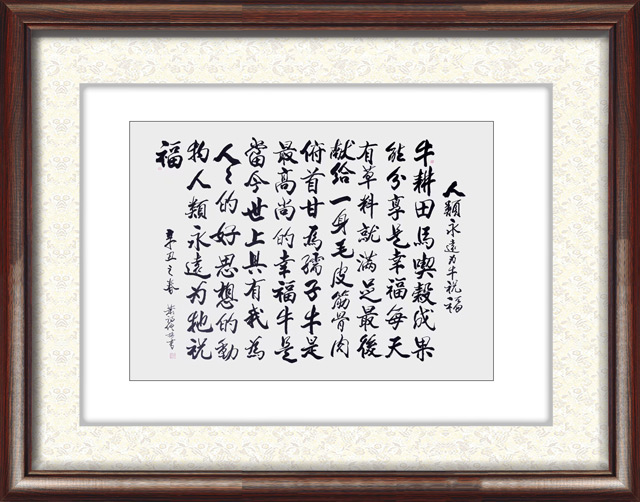 人類永遠为牛祝福
牛耕田馬喫穀成果
能分享是幸福每天
有草料就滿足最後
献给一身毛皮筋骨肉
俯首甘為孺子牛是
最高尚的幸福牛是
當今世上具有我為
人人的好思想的動
物人類永遠为牠祝
福
辛丑之春
書